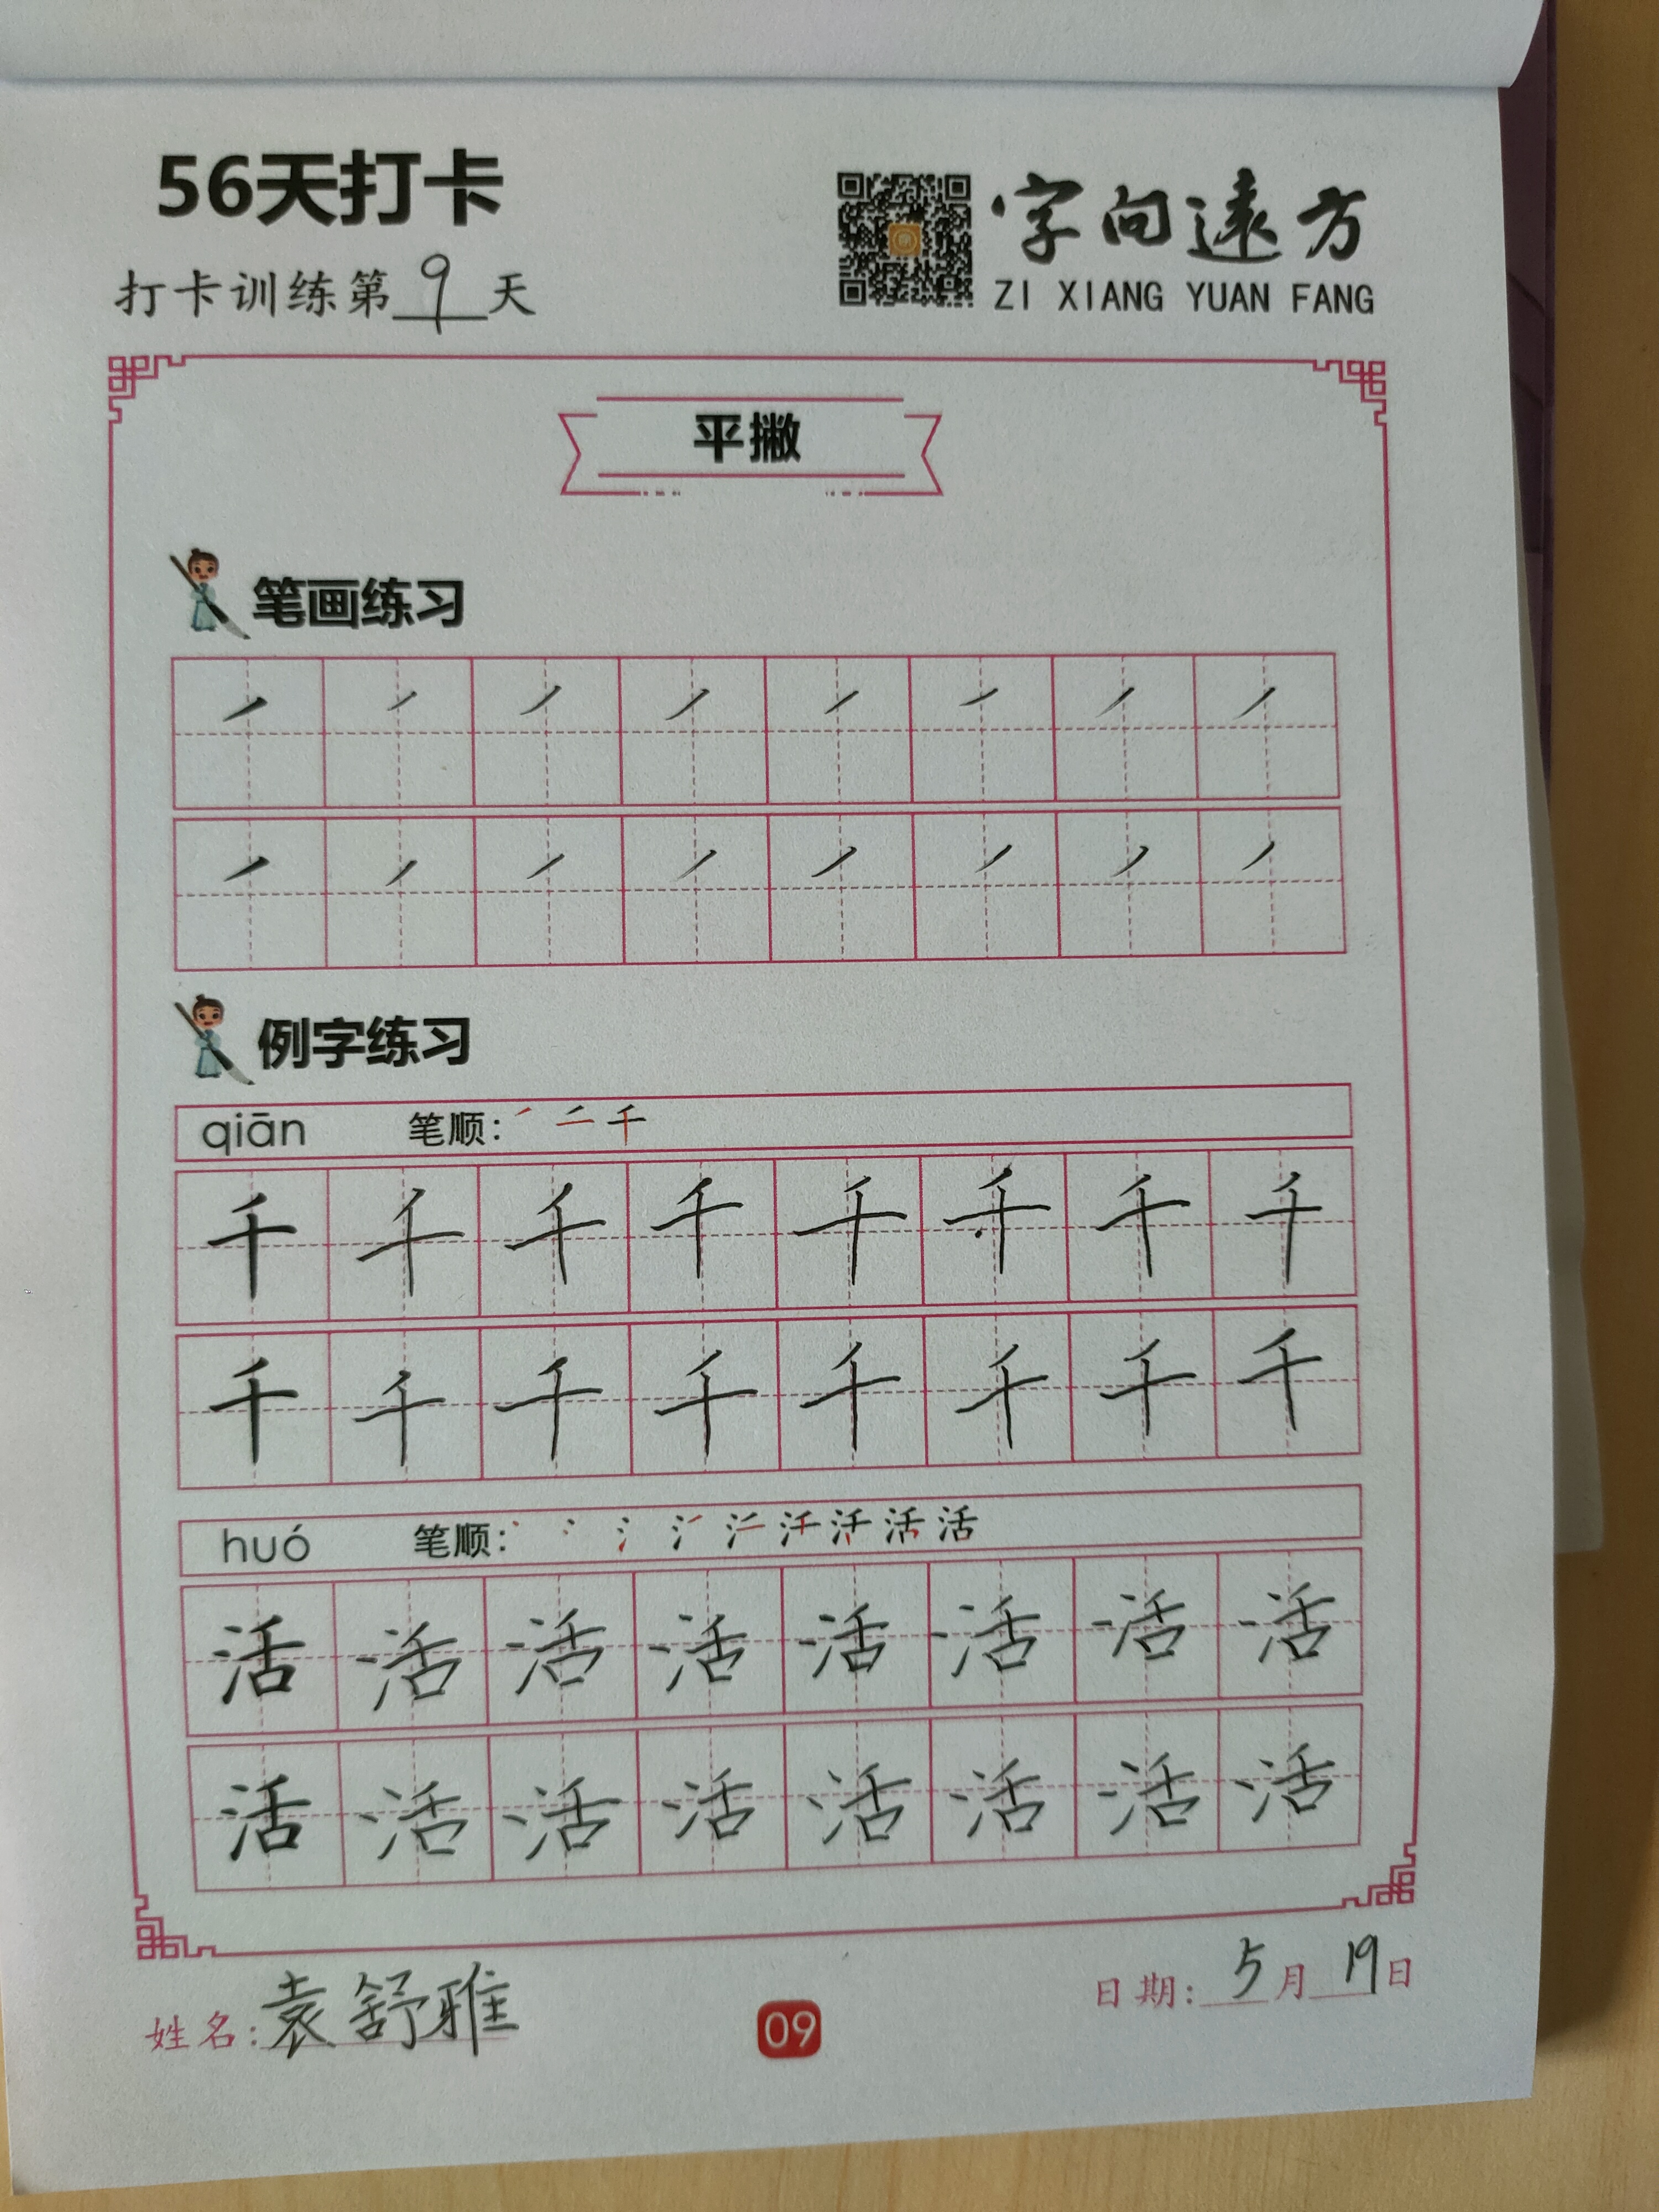 56天打卡
打卡训练第9天
字向远方
ZI XIANG YUAN FANG
平撇
笔画练习
㇒ ㇒ ㇒ ㇒ ㇒ ㇒ ㇒ ㇒
㇒ ㇒ ㇒ ㇒ ㇒ ㇒ ㇒ ㇒
例字练习
qiān 笔顺: ㇒ 二 千
千 千 千 千 千 千 千 千
千 千 千 千 千 千 千 千
huó 笔顺: 活
活 活 活 活 活 活 活 活
活 活 活 活 活 活 活 活
姓名:袁舒雅
09
日期:5月19日